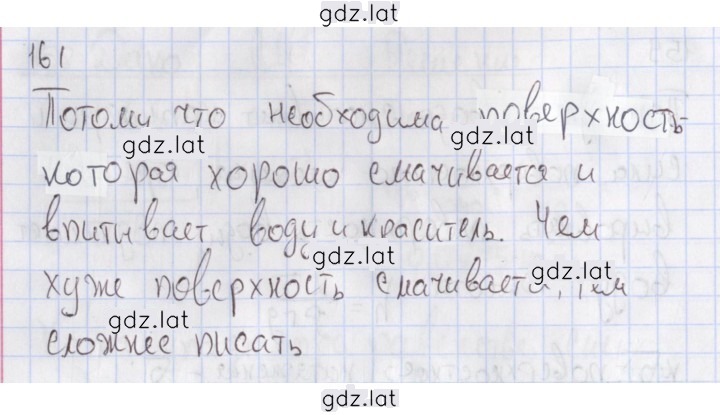 gdz.lat
161
Потому что необходима поверхность
gdz.lat
gdz.lat
которая хорошо смачивается и
впитывает воду и краситель. Чем
gdz.lat
gdz.lat
хуже поверхность смачивается, тем
gdz.lat
сложнее писать
gdz.lat